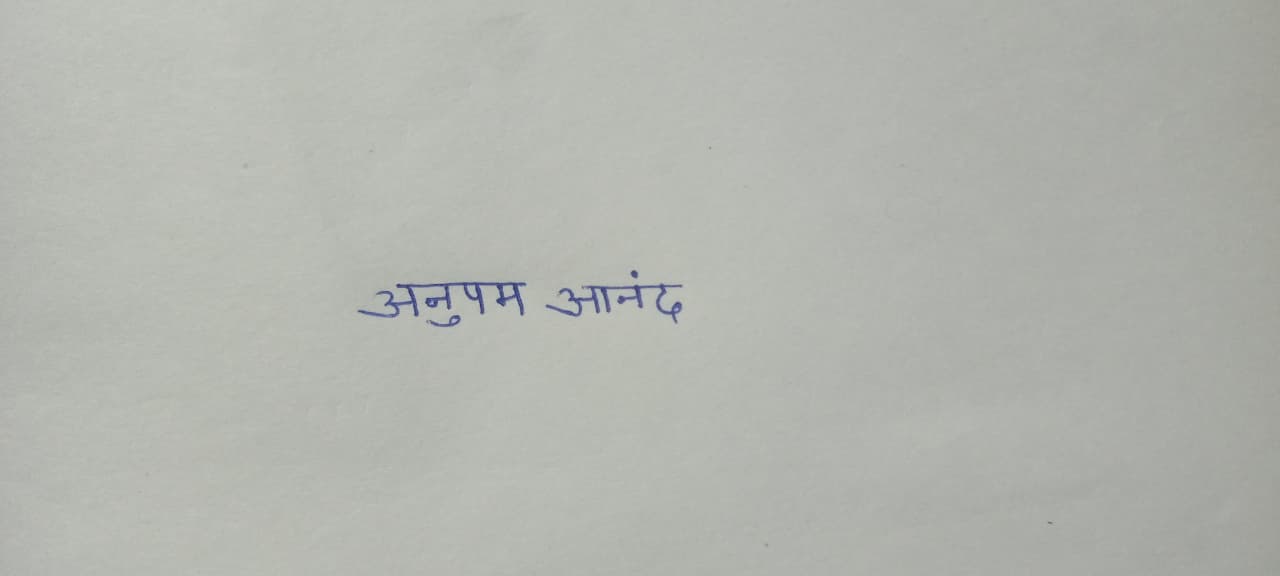 अनुपम आनंद